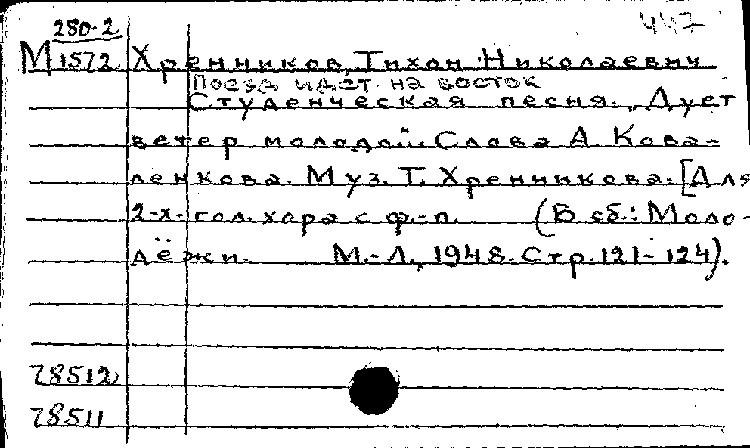 280-2 447
М1572 Хренников, Тихон Николаевич
Поезд идет на восток
Студенческая песня. Дует
ветер молодой. Слова А. Кова-
ленкова. Муз. Т. Хренникова. [Для
2-х гол. хора с ф.-п. (В сб.: Моло-
дёжи. М.-Л., 1948. Стр. 121-124).
78512
78511